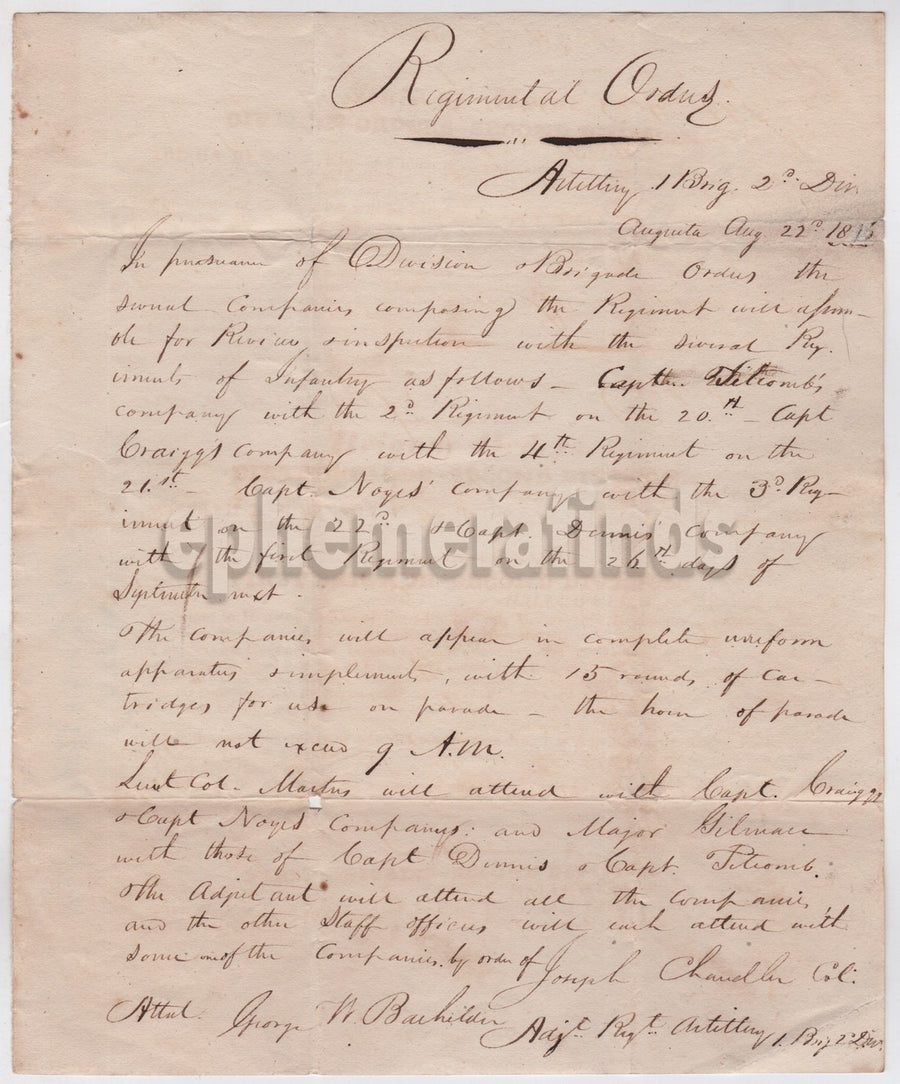 Regimental Orders
Artillery 1 Brig. 2d Div
Augusta Aug. 22d 18
In pursuance of Division & Brigade Orders the
several Companies composing the Regiment will assem-
ble for Review & inspection with the several Reg-
iments of Infantry as follows - Capt. Titcomb's
company with the 2d Regiment on the 20th - Capt
Craiggs company with the 4th Regiment on the
21.st - Capt. Noyes' company with the 3d Reg-
iment on the 22d & Capt. Dennis' company
with the first Regiment on the 26th days of
September next.
The companies will appear in complete uniform
apparatus & implements, with 15 rounds of car-
tridges for use on parade - the hour of parade
will not exceed 9 A.M.
Lieut Col. will attend with Capt. Craiggs
& Capt Noyes' Companies: and Major Gilman
with those of Capt Dennis & Capt. Titcomb.
The Adjutant will attend all the companies,
and the other Staff officers will each attend with
some one of the Companies. by order of
Joseph Chandler Col.
Attest. George W. Bachelder Adjt. Regt. Artillery 1. Brig 2d Div.
ephemerafinds